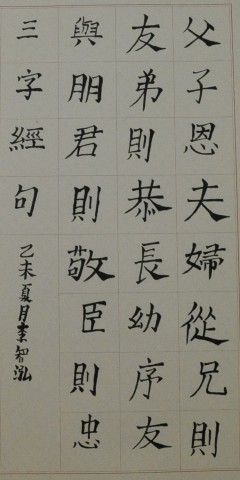 父子恩夫婦從兄則
友弟則恭長幼序友
與朋君則敬臣則忠
三字經句
乙未夏月李智泓